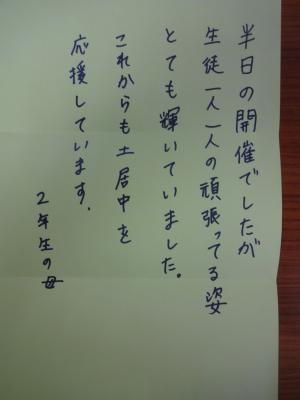 半日の開催でしたが
生徒一人一人の頑張ってる姿
とても輝いていました。
これからも土居中を
応援しています.
2年生の母